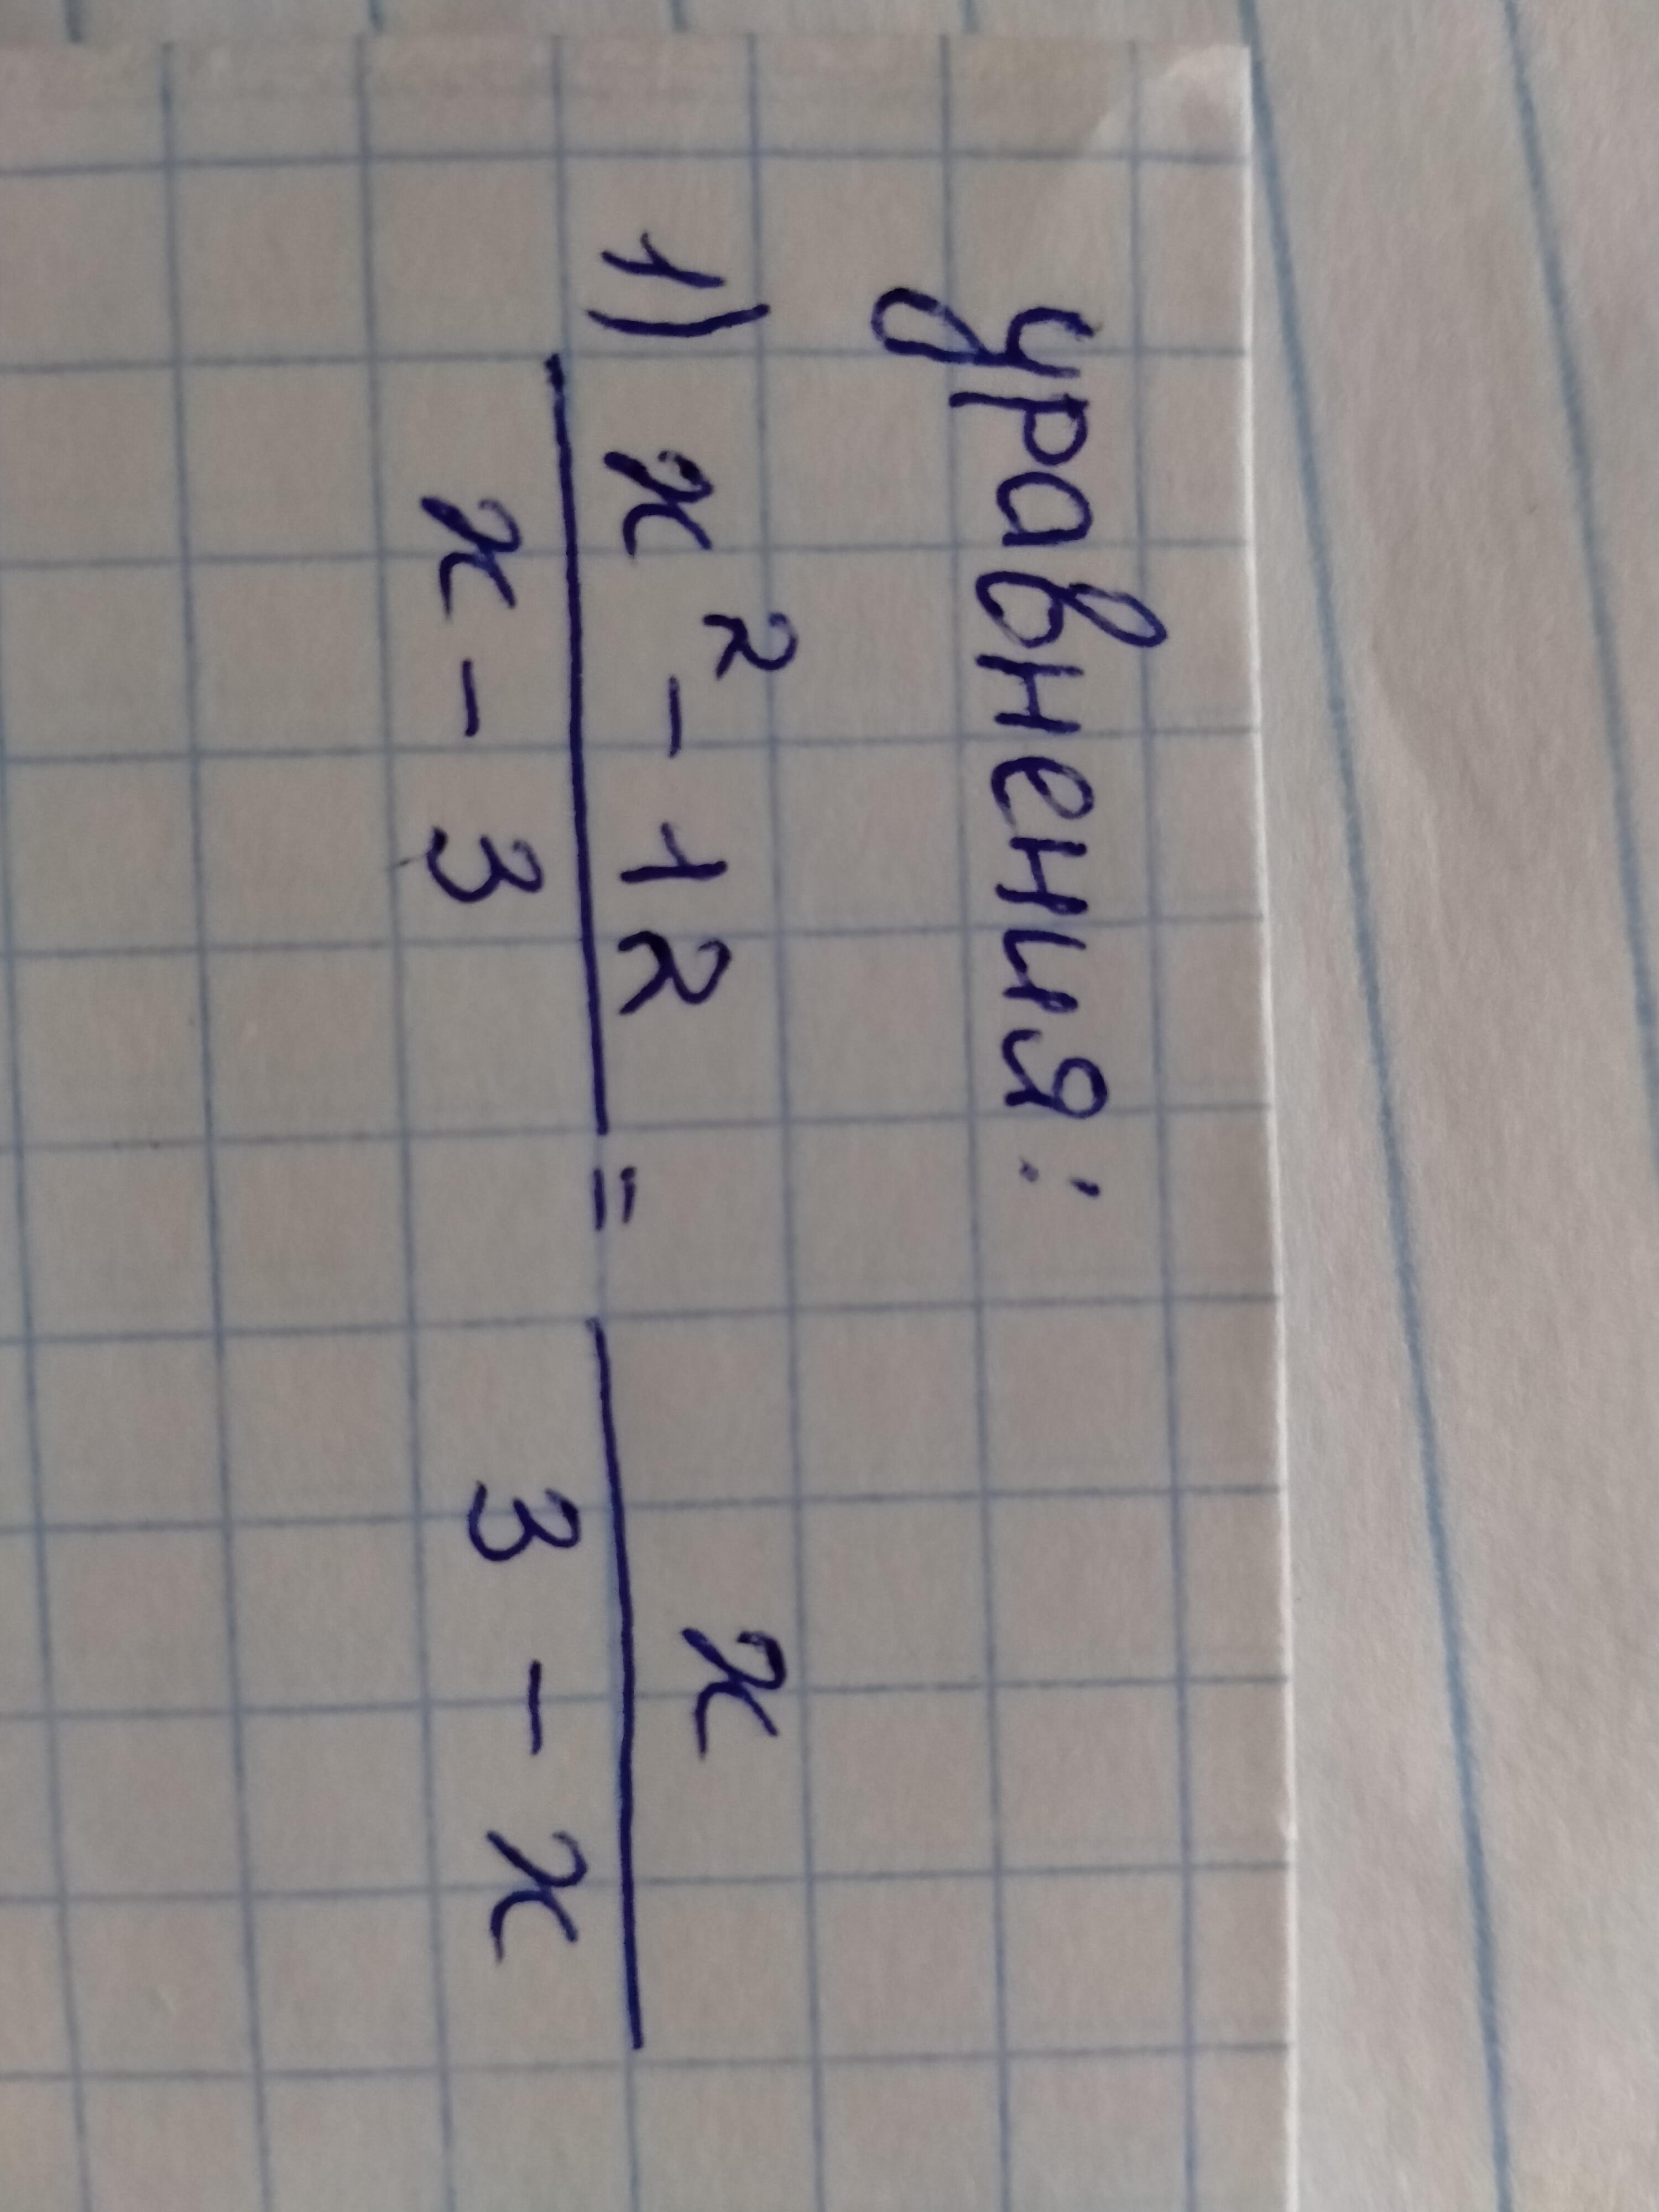 уравнения:
1) x² - 12 / x - 3 = x / 3 - x